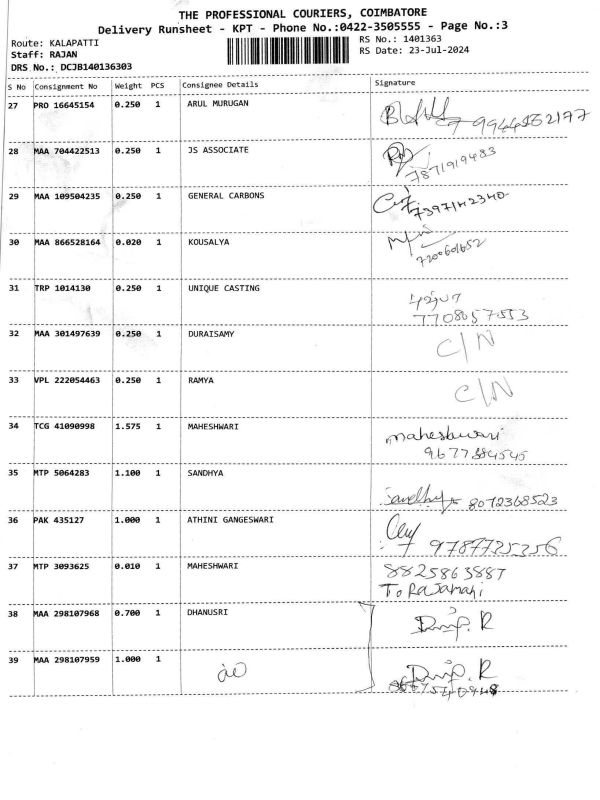 THE PROFESSIONAL COURIERS, COIMBATORE
Delivery Runsheet - KPT - Phone No.:0422-3505555 - Page No.:3
Route: KALAPATTI
Staff: RAJAN
DRS No.: DCJB140136303
RS No.: 1401363
RS Date: 23-Jul-2024
S No Consignment No Weight PCS Consignee Details Signature
27 PRO 16645154 0.250 1 ARUL MURUGAN
28 MAA 704422513 0.250 1 JS ASSOCIATE 7871919483
29 MAA 109504235 0.250 1 GENERAL CARBONS 7397142340
30 MAA 866528164 0.020 1 KOUSALYA 7200601652
31 TRP 1014130 0.250 1 UNIQUE CASTING
7708057553
32 MAA 301497639 0.250 1 DURAISAMY C/N
33 VPL 222054463 0.250 1 RAMYA C/N
34 TCG 41090998 1.575 1 MAHESHWARI maheshwari
9677384545
35 MTP 5064283 1.100 1 SANDHYA Sandhya 8072368523
36 PAK 435127 1.000 1 ATHINI GANGESWARI
9787725356
37 MTP 3093625 0.010 1 MAHESHWARI 8825863887
To Rajamani
38 MAA 298107968 0.700 1 DHANUSRI
39 MAA 298107959 1.000 1